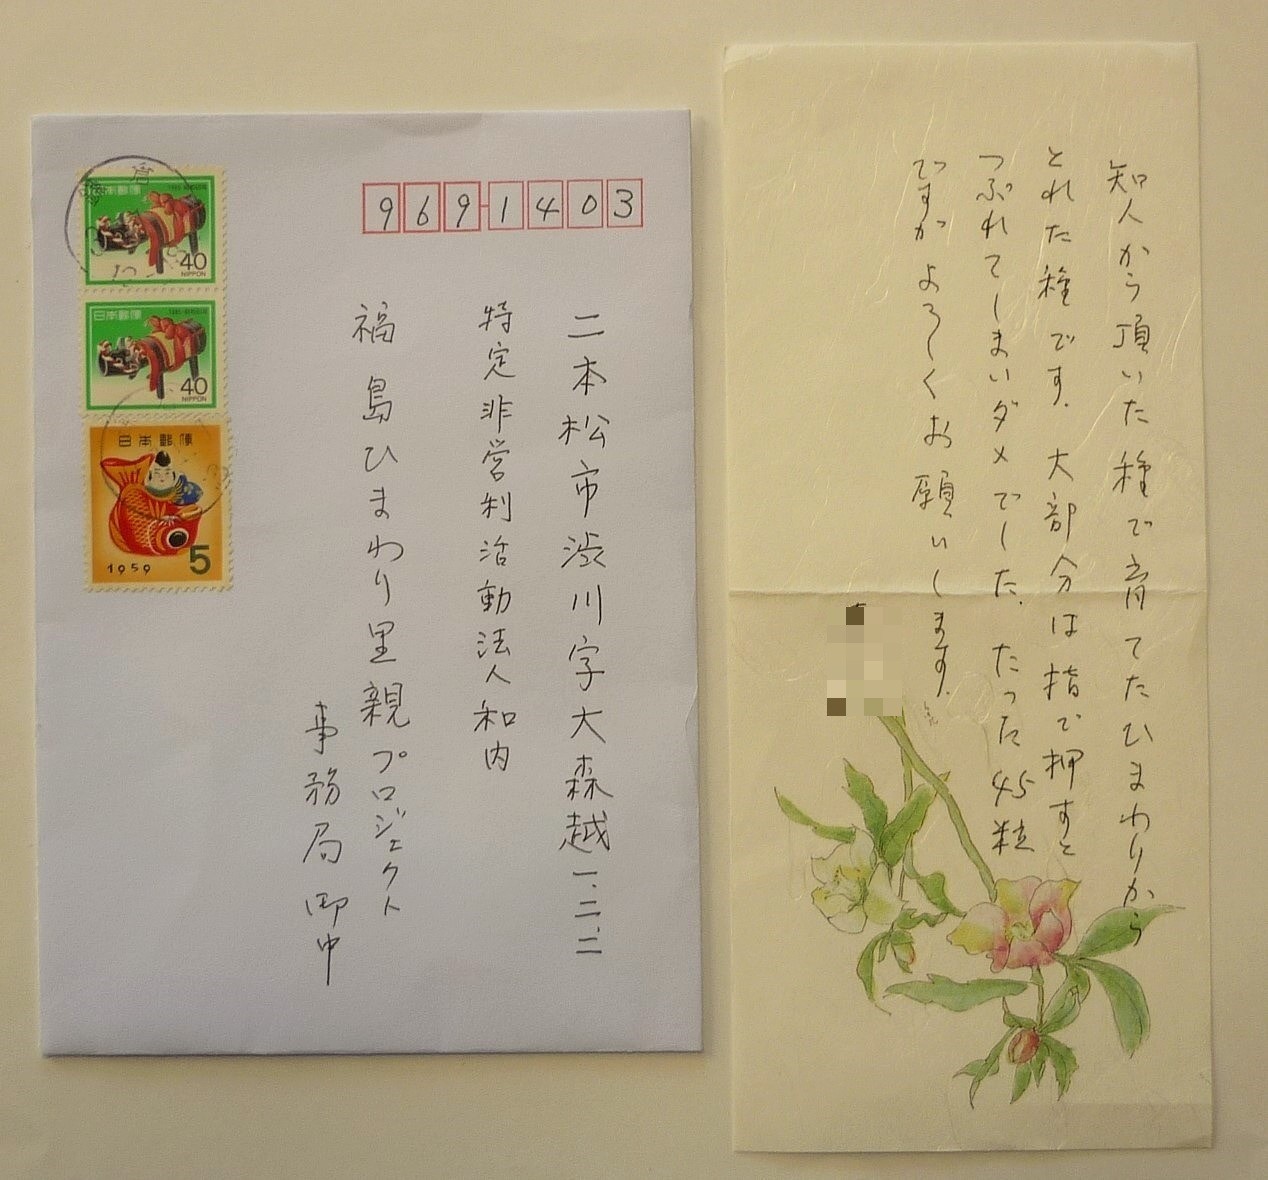 日本郵便
1985 昭和60年
40
NIPPON
日本郵便
1985 昭和60年
40
NIPPON
日本郵便
1959
5
969-1403
二本松市渋川字大森越一、二、二
特定非営利活動法人和内
福島ひまわり里親プロジェクト
事務局御中
知人から頂いた種で育てたひまわりから
とれた種です.大部分は指で押すと
つぶれてしまいダメでした.たった45粒
ですがよろしくお願いします.